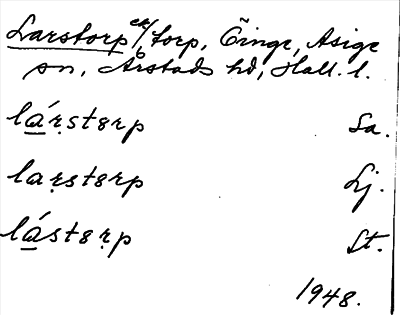 Larstorp ek/, torp, Öinge, Asige
sn, Årstads hd, Hall. l.
lá̱ṛstɵrp Sa.
laṛstɵrp Lj.
lá̱stɵṛp St.
1948.